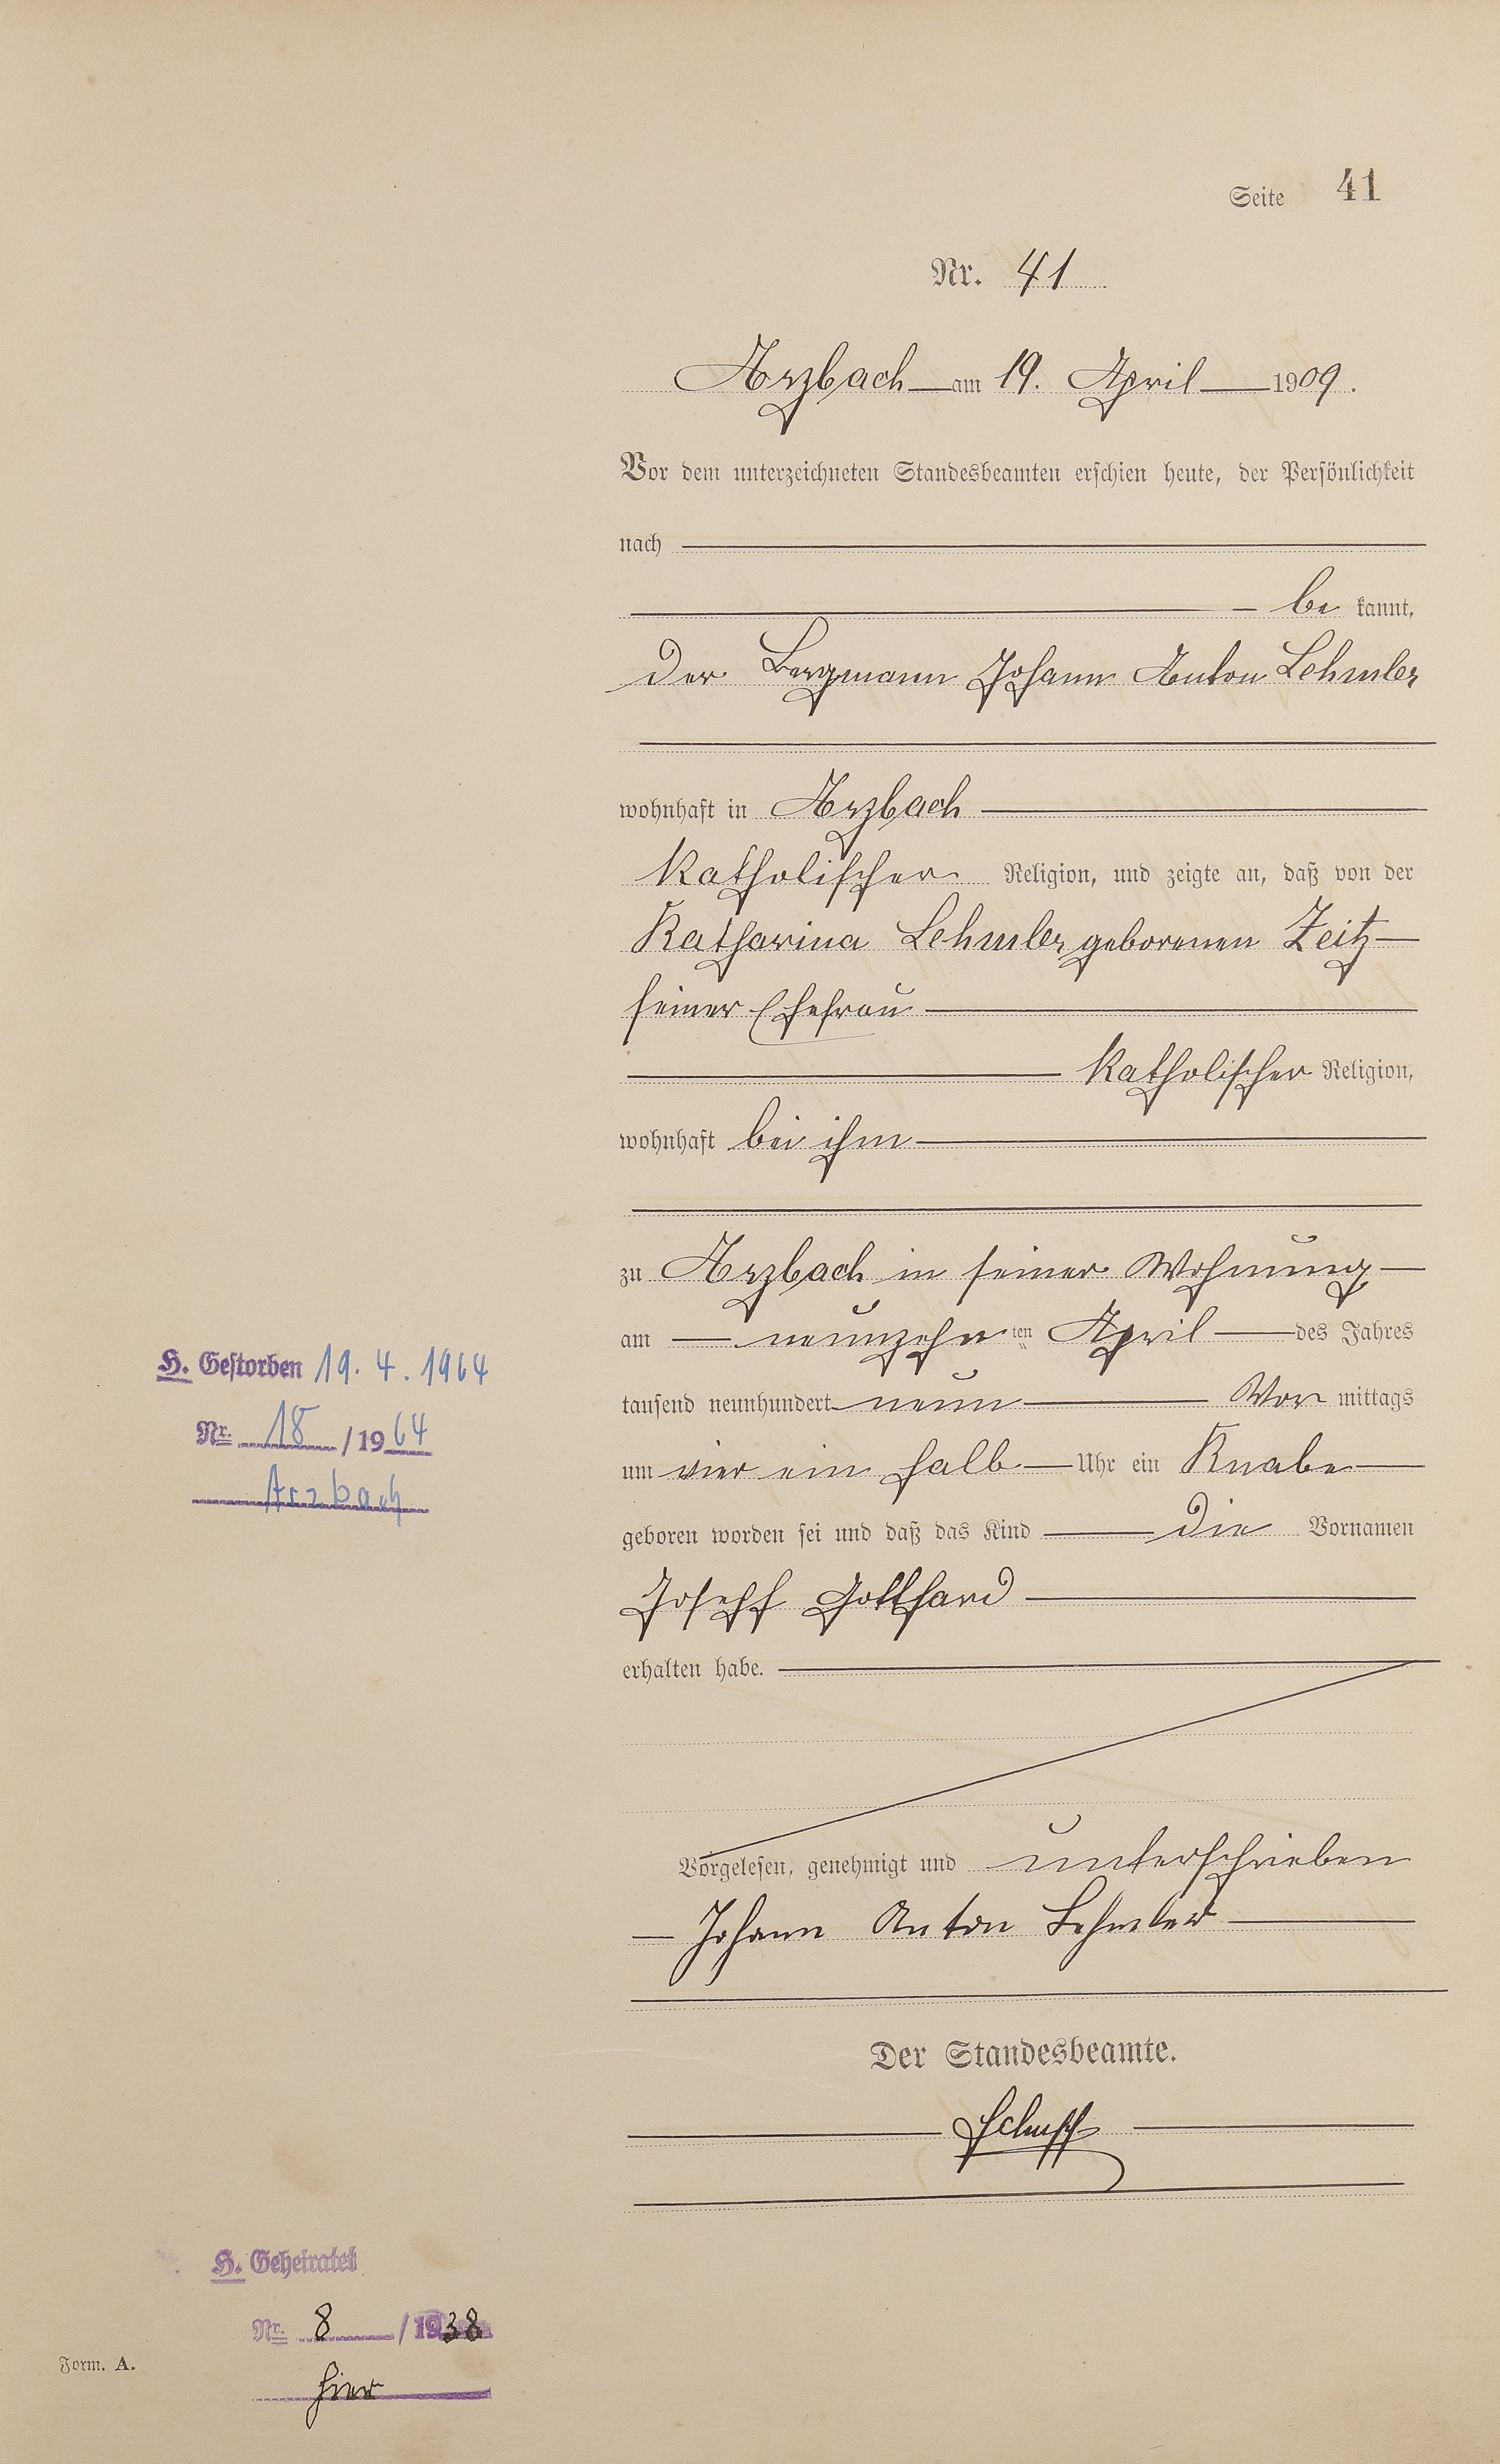 Seite 41
Nr. 41
Arzbach am 19. April 1909.
Vor dem unterzeichneten Standesbeamten erschien heute, der Persönlichkeit
nach
be kannt,
der Bergmann Johann Anton Lehmler
wohnhaft in Arzbach
katholischer Religion, und zeigte an, daß von der
Katharina Lehmler geborenen Zeitz
seiner Ehefrau
katholischer Religion,
wohnhaft bei ihm
zu Arzbach in seiner Wohnung
am neunzehn ten April des Jahres
tausend neunhundert neun Vor mittags
um vier ein halb Uhr ein Knabe
geboren worden sei und daß das Kind die Vornamen
Joseph Gotthard
erhalten habe.
Vorgelesen, genehmigt und unterschrieben
Johann Anton Lehmler
Der Standesbeamte.
H. Gestorben 19. 4. 1964
Nr. 18 / 1964
Arzbach
H. Geheiratet
Nr. 8 / 1938
hier
Form. A.